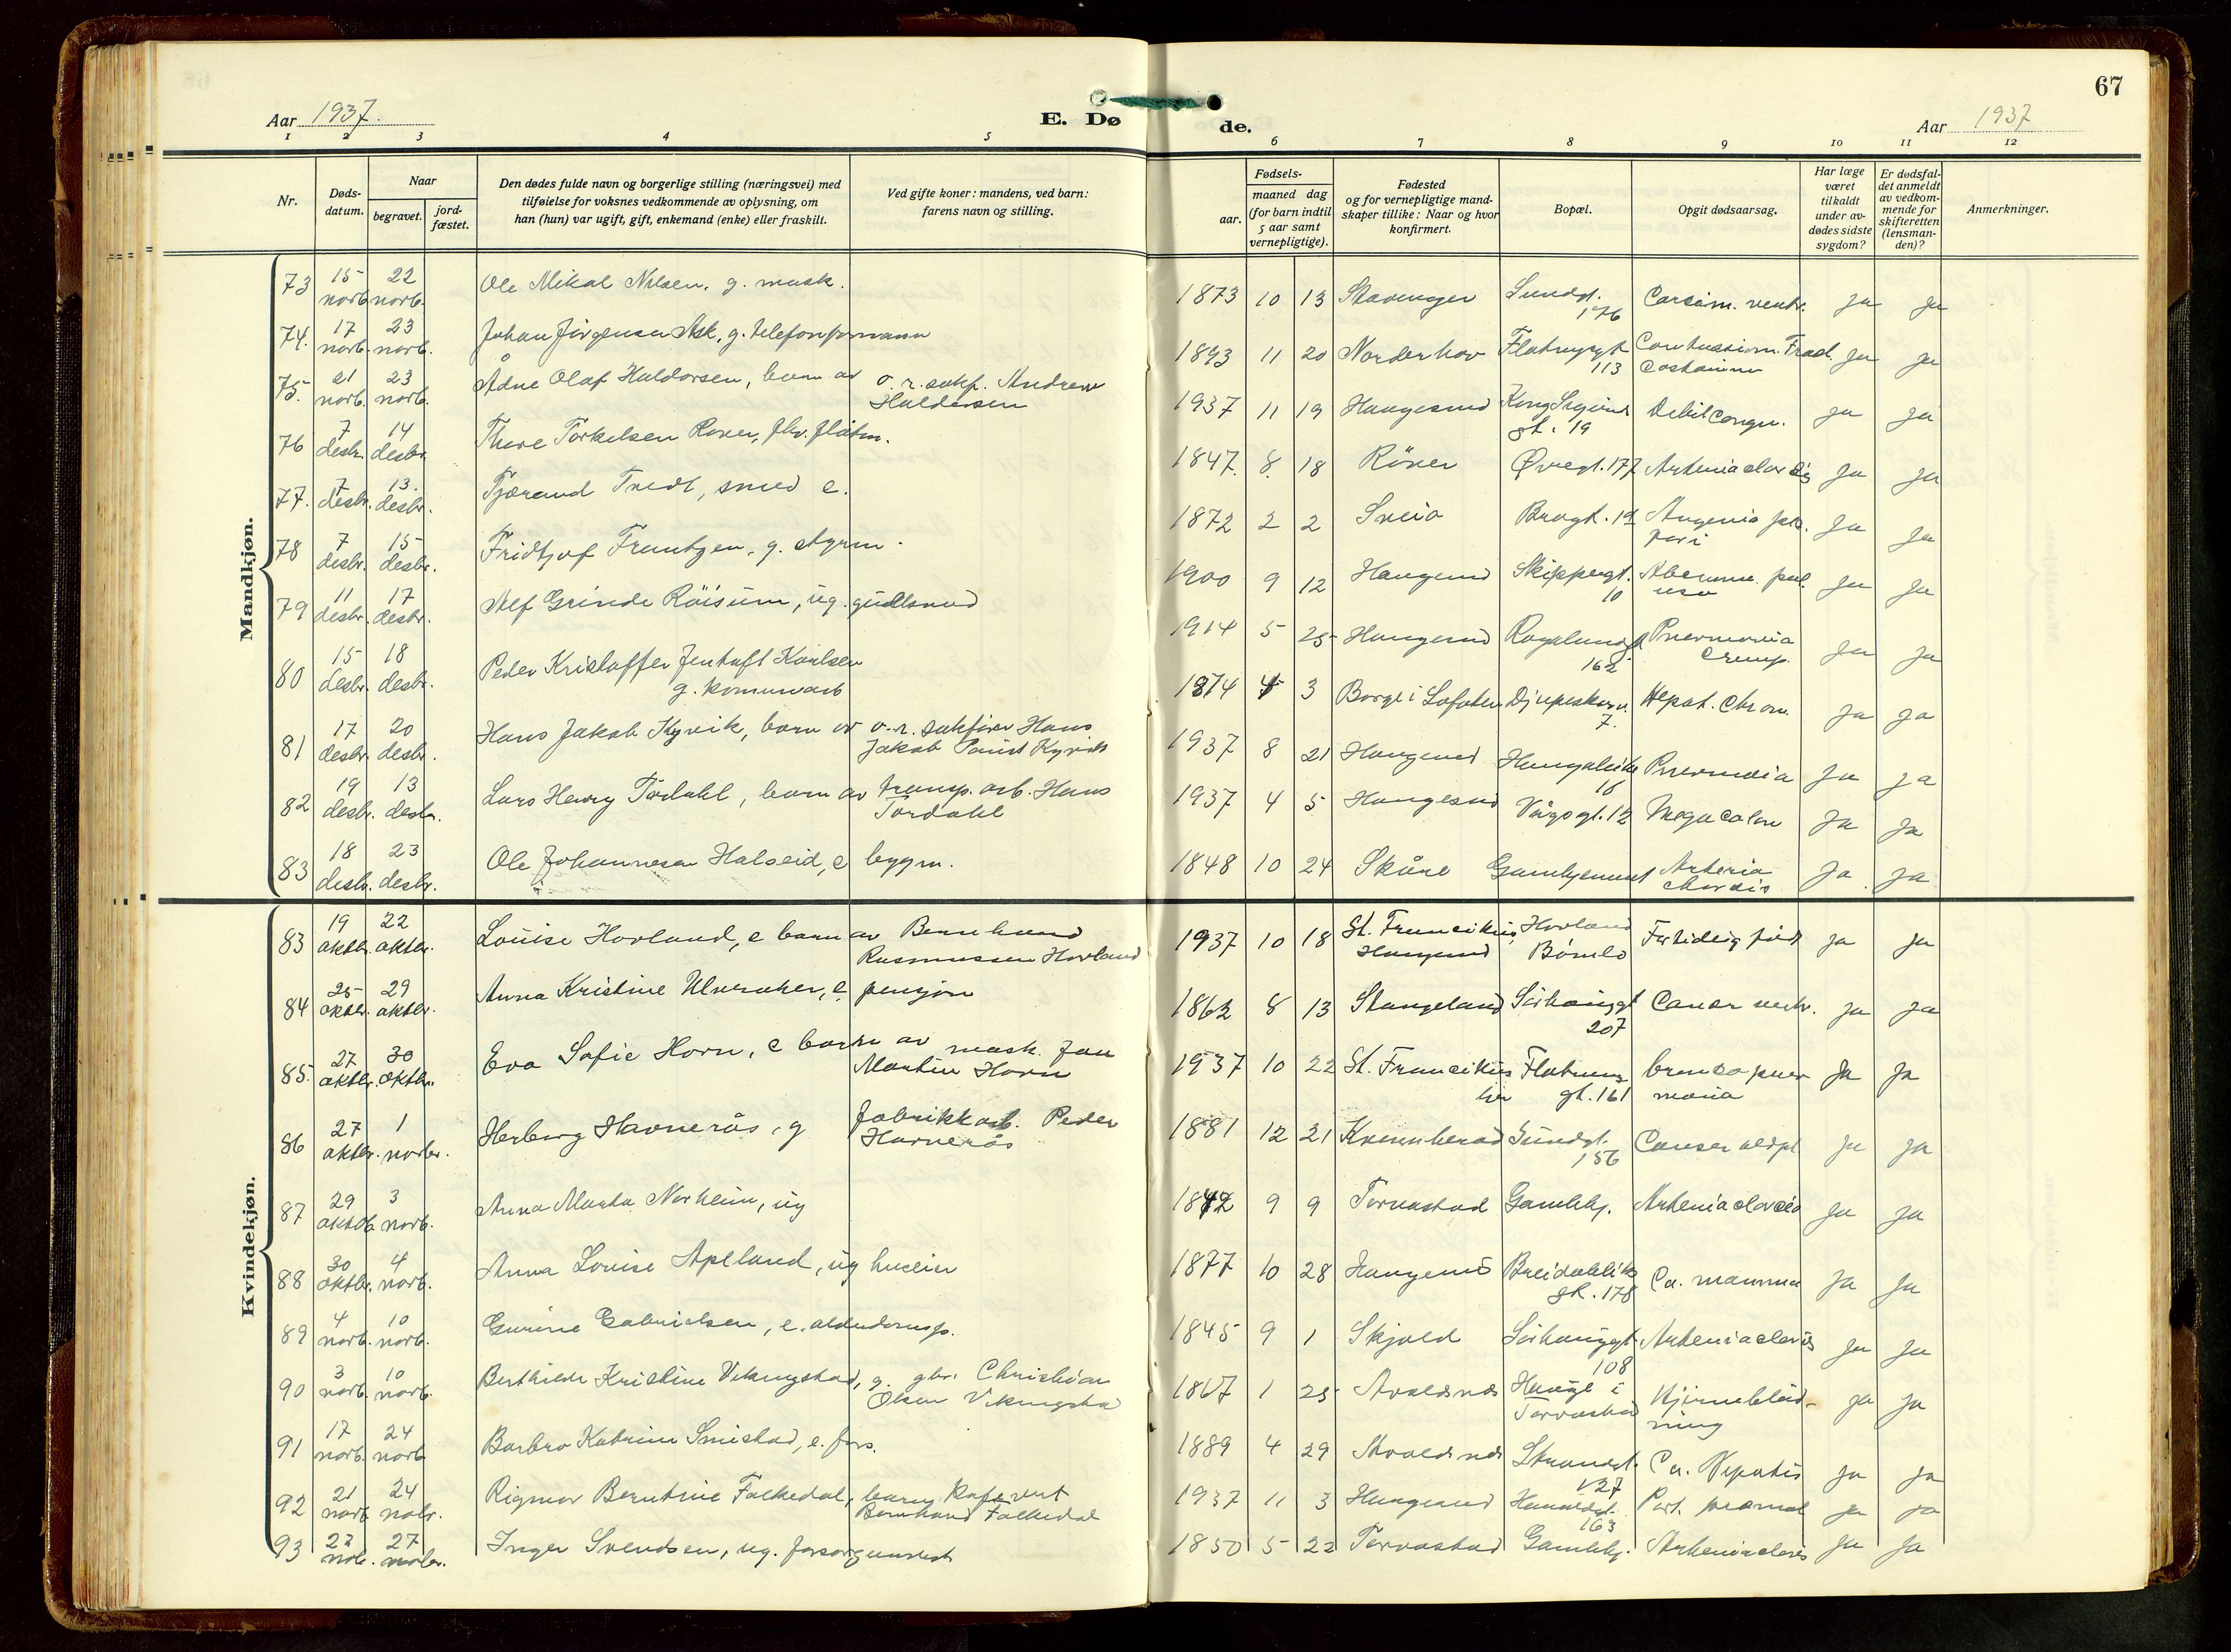 67
Aar 1937.
E. Døde.
Aar 1937
1 2 3 4 5 6 7 8 9 10 11 12
Nr.
Døds-datum.
Naar
begravet.
jord-fæstet.
Den dødes fulde navn og borgerlige stilling (næringsvei) med
tilføielse for voksnes vedkommende av oplysning, om
han (hun) var ugift, gift, enkemand (enke) eller fraskilt.
Ved gifte koner: mandens, ved barn:
farens navn og stilling.
Fødsels-
aar.
maaned dag
(for barn indtil
5 aar samt
vernepligtige).
Fødested
og for vernepligtige mand-
skaper tillike: Naar og hvor
konfirmert.
Bopæl.
Opgit dødsaarsag.
Har læge
været
tilkaldt
under av-
dødes sidste
sygdom?
Er dødsfal-
det anmeldt
av vedkom-
mende for
skifteretten
(lensman-
den)?
Anmerkninger.
Mandkjøn.
73 15 novb. 22 novb. Ole Mikal Nilsen, g. mask. 1873 10 13 Stavanger Sundgt. 176 ventr. Ja Ja
74. 17 novb. 23 novb. Johan Jörgensen Ask, g. telefonformann 1893 11 20 Norderhov Flotmyrgt 113 Ja Ja
75. 21 novb. 23 novb. Ådne Olaf Haldorsen, barn av o.r. sakf. Andreas Haldorsen 1937 11 19 Haugesund Kong Sigurds gt. 19 Debil congen. Ja Ja
76 7 desbr. 14 desbr. Thore Torkelsen Röver, fhv. 1847. 8. 18 Röver Øvregt. 177 Ja Ja
77. 7 desbr. 13. desbr. Tjerand Tvedt, smed e. 1872 2 2 Sveio Brogt. 19 Angenia Ja Ja
78 7 desbr. 15 desbr. Fridtjof Frantzen, g. styrm. 1900 9 12 Haugesund Skippergt. 10 Ja Ja
79 11 desbr. 17 desbr. Alf Grinde Röisum, ug. gullsmed 1914 5 25 Haugesund Rogalandsgt 162 Pneumonia Croup. Ja Ja
80 15 desbr. 18 desbr. Peder Kristoffer Jentoft Karlsen g. kommunearb 1874 4 3 Borge i Lofoten Djupaskarv. 7. Hepat. Chron. Ja Ja
81 17 desbr. 20 desbr. Hans Jakob Kyvik, barn av o.r. sakfører Hans Jakob Kyvik 1937 8 21 Haugesund 16 Pneumonia Ja Ja
82 19 desbr. 13 desbr. Lars Henry Tordahl, barn av transp. arb. Hans Tordahl 1937 4 5 Haugesund Vågsgt. 12 Mega Colon Ja Ja
83 18 desbr. 23 desbr. Ole Johannesen Halseid, e bygm. 1848 10 24 Skåre Gamlehjemmet Ja Ja
Kvindekjøn.
83 19 oktbr. 22 oktbr. Louise Hovland, e barn av Bernhard Rasmussen Hovland 1937 10 18 St. Franciskus, Haugesund Hovland Bömlo For tidlig født Ja Ja
84 25 oktbr. 29 oktbr. Anna Kristine Ulveraker, e. pensjon 1862 8 13 Stangeland Sörhauggt 207 Cancer ventr. Ja Ja
85. 27 oktbr. 30 oktbr. Eva Sofie Horn, e barn av mask. Jan Martin Horn 1937 10 22 St. Franciskus her Flotmyr gt. 161 bronco pneumonia Ja Ja
86 27 oktbr. 1 novbr. Herborg Havnerås, g fabrikkarb. Peder Havnerås 1881 12 21 Kvennherad Sundgt. 156 Ja Ja
87 29 oktob. 3 novb. Anna Marta Norheim, ug 1842 9 9 Torvastad Gamlehj. Ja Ja
88 30 oktbr. 4 novb. Anna Louise Apeland, ug huseier 1877 10 28 Haugesund Breidablik gt. 178 Ca. mamma Ja Ja
89 4 novb. 10 novb. Gurine Gabrielsen, e. 1845 9 1 Skjold Sörhauggt. 108 Ja Ja
90 3 novb. 10 novb. Berthilde Kristine Vikingstad, g. gbr. Christian Olsen Vikingstad 1867 1 25 Avaldsnes Hauge i Torvastad Hjerneblödning Ja Ja
91 17 novb. 24 novb Barbro Katrine Smistad, e. fors. 1889 4 29 Avaldsnes Strandgt. 127 Ca. Hepatis Ja Ja
92 21 novb 24 nobr. Rigmor Berntine Falkedal, barn kafevert Bernhard Falkedal 1937 11 3 Haugesund 163 Ja Ja
93 22 nob. 27 nobr. Inger Svendsen, ug. forsorgsunderst 1850 5 22 Torvastad Gamlehj. Ja Ja